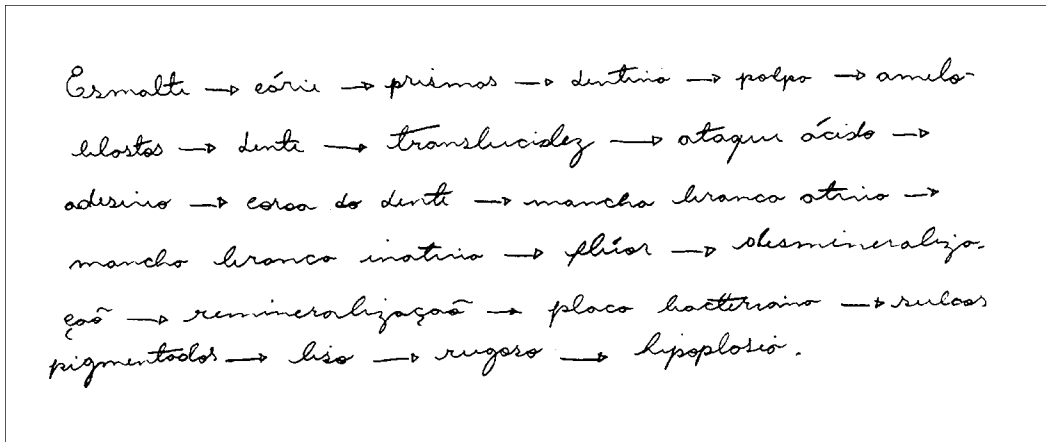 Esmalte → cárie → prismas → dentina → polpa → amelo-
blastos → dente → translucidez → ataque ácido →
adesivo → coroa do dente → mancha branca ativa →
mancha branca inativa → flúor → desmineraliza-
ção → remineralização → placa bacteriana → sulcos
pigmentados → liso → rugoso → hipoplasia.